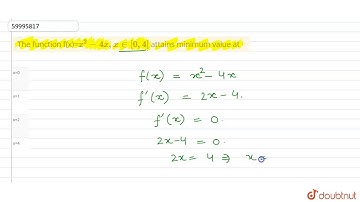 59995817
The function f(x)=x² − 4x, x ∈ [0, 4] attains minimum value at
x=0
x=1
x=2
x=4
f(x) = x² − 4x
f'(x) = 2x − 4.
f'(x) = 0
2x−4 = 0.
2x = 4 ⇒ x
doubtnut